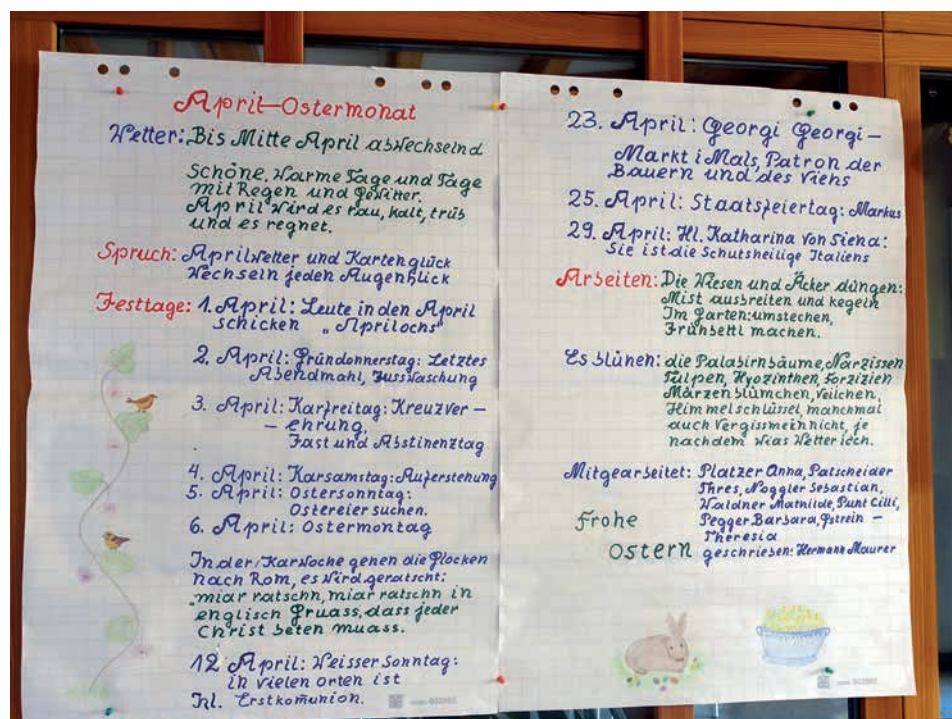 April-Ostermonat
Wetter: Bis Mitte April abwechselnd
Schöne, Warme Tage und Tage
mit Regen und Gewitter.
April wird es rau, kalt, trüb
und es regnet.
Spruch: Aprilwetter und Kartenglück
Wechseln jeden Augenblick
Festtage: 1. April: Leute in den April
schicken „Aprilochs"
2. April: Gründonnerstag: Letztes
Abendmahl, Fusswaschung
3. April: Karfreitag: Kreuzver-
-ehrung,
Fast und Abstinenztag
4. April: Karsamstag: Auferstehung
5. April: Ostersonntag:
Ostereier suchen.
6. April: Ostermontag
In der Karwoche gehen die Glocken
nach Rom, es wird geratscht:
"miar ratschn, miar ratschn in
englisch Gruass, dass jeder
Christ beten muass.
12 April: Weisser Sonntag:
in vielen Orten ist
hl. Erstkomunion.
23. April: Georgi Georgi-
Markt i Mals, Patron der
Bauern und des Viehs
25. April: Staatsfeiertag: Markus
29. April: Hl. Katharina von Siena:
Sie ist die Schutsheilige Italiens
Arbeiten: Die Wiesen und Äcker düngen:
Mist ausbreiten und kegeln
Im Garten: umstechen,
Frühbettl machen.
Es blühen: die Palabirnbäume, Narzissen
Tulpen, Hyozinthen, Forzizien
Märzenblümchen, Veilchen,
Himmelschlüssel, manchmal
auch Vergissmeinnicht, je
nachdem wias Wetter isch.
Mitgearbeitet: Platzer Anna, Patscheider
Thres, Noggler Sebastian,
Waldner Mathilde, Punt Cilli,
Pegger Barbara, Gstrein-
Theresia
geschrieben: Hermann Maurer
Frohe
Ostern